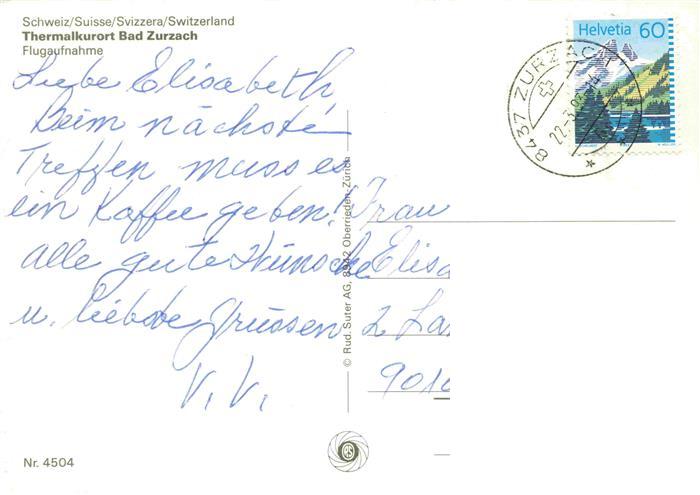 Schweiz/Suisse/Svizzera/Switzerland
Thermalkurort Bad Zurzach
Flugaufnahme
Helvetia 60
8437 ZURZACH
22-3.
Liebe Elisabeth,
Beim nächste
Treffen muss es
ein Kaffee geben!
alle gute Wünsche
u. liebste Grüssen
V. V.
Frau
Elisa
2 La
901
© Rud. Suter AG, 8942 Oberrieden-Zürich
Nr. 4504